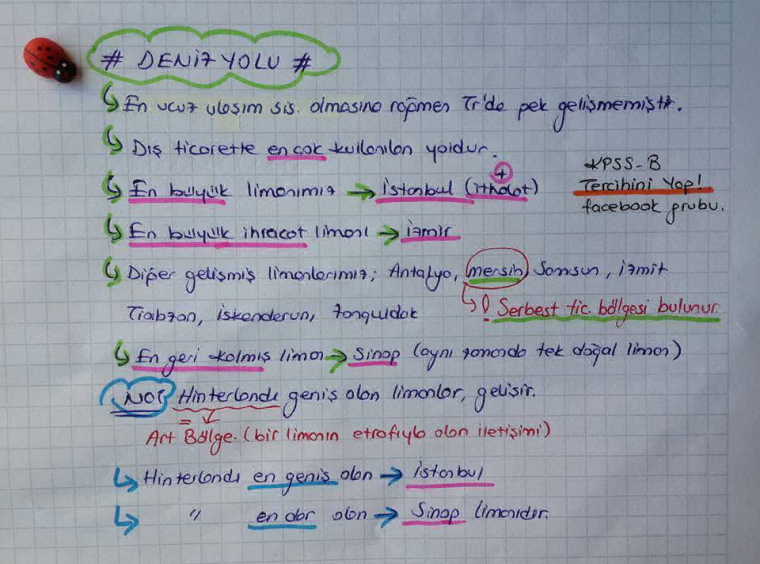 # DENİZ YOLU #
En ucuz ulaşım sis. olmasına rağmen Tr'de pek gelişmemiştir.
Dış ticarette en çok kullanılan yoldur.
En büyük limanımız → İstanbul (ithalat)
+
KPSS-B
Tercihini Yap!
facebook grubu.
En büyük ihracat limanı → İzmir
Diğer gelişmiş limanlarımız; Antalya, mersin, Samsun, izmit
Trabzon, İskenderun, Zonguldak
! Serbest tic. bölgesi bulunur.
En geri kalmış liman → Sinop (aynı zamanda tek doğal liman)
NOT Hinterlandı geniş olan limanlar, gelişir.
= Art Bölge. (bir limanın etrafıyla olan iletişimi)
Hinterlandı en geniş olan → İstanbul
" en dar olan → Sinop limanıdır.